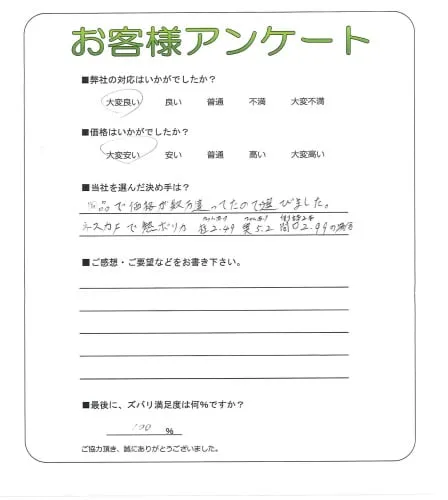 お客様アンケート
■弊社の対応はいかがでしたか？
大変良い 良い 普通 不満 大変不満
■価格はいかがでしたか？
大変安い 安い 普通 高い 大変高い
■当社を選んだ決め手は？
品で価格が数万違ってたので選びました。
ネスカFで 2.49 5.2 2.99の場合
■ご感想・ご要望などをお書き下さい。
■最後に、ズバリ満足度は何％ですか？
100 ％
ご協力頂き、誠にありがとうございました。